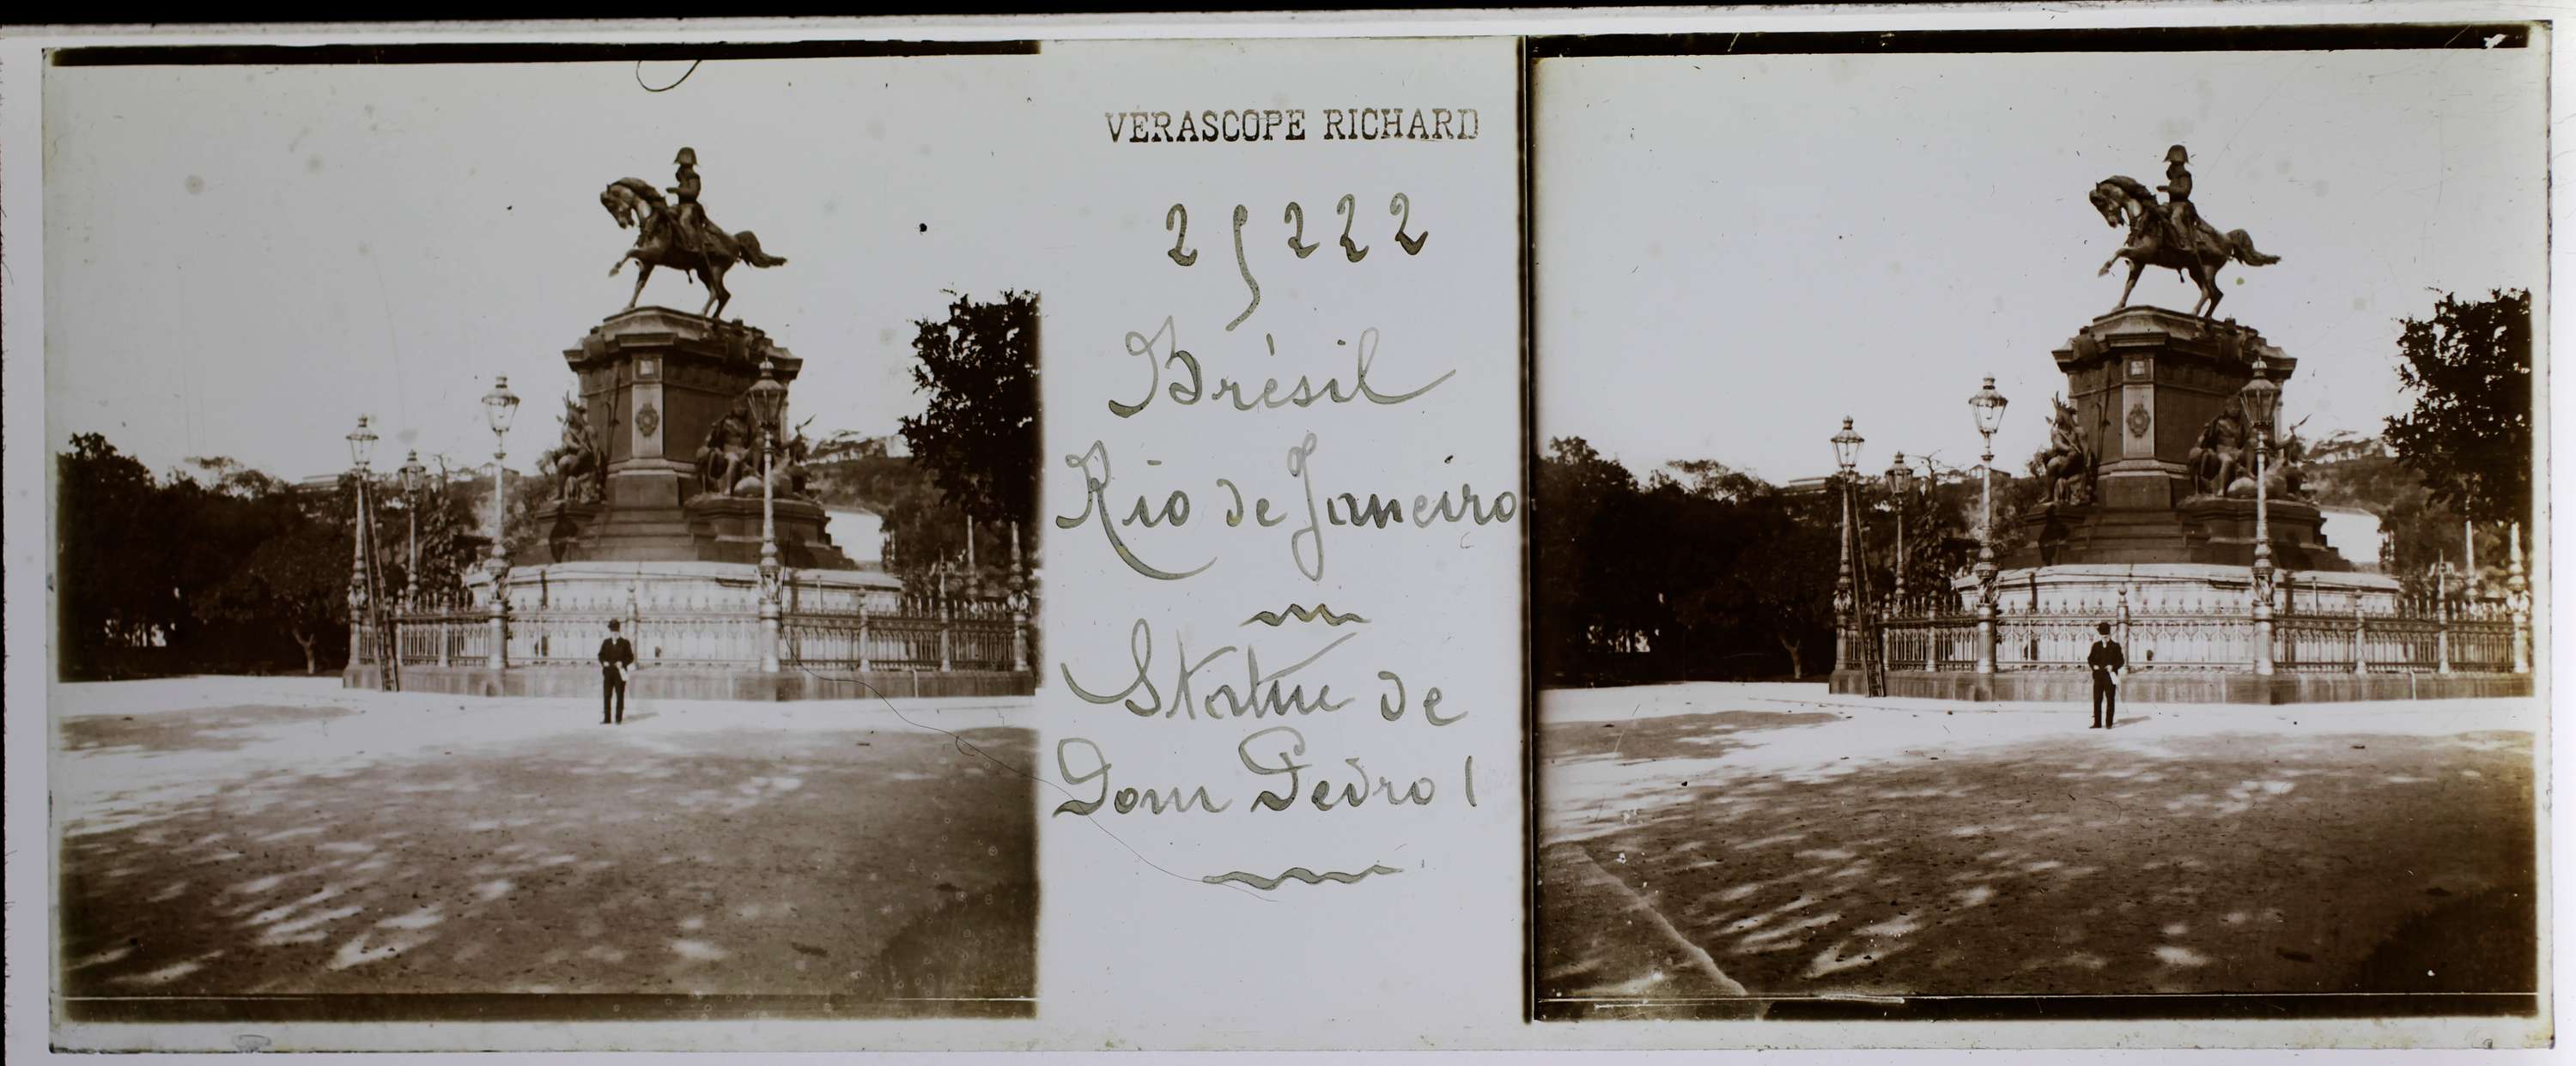 VERASCOPE RICHARD
25222
Brésil
Rio de Janeiro
Statue de
Dom Pedro I